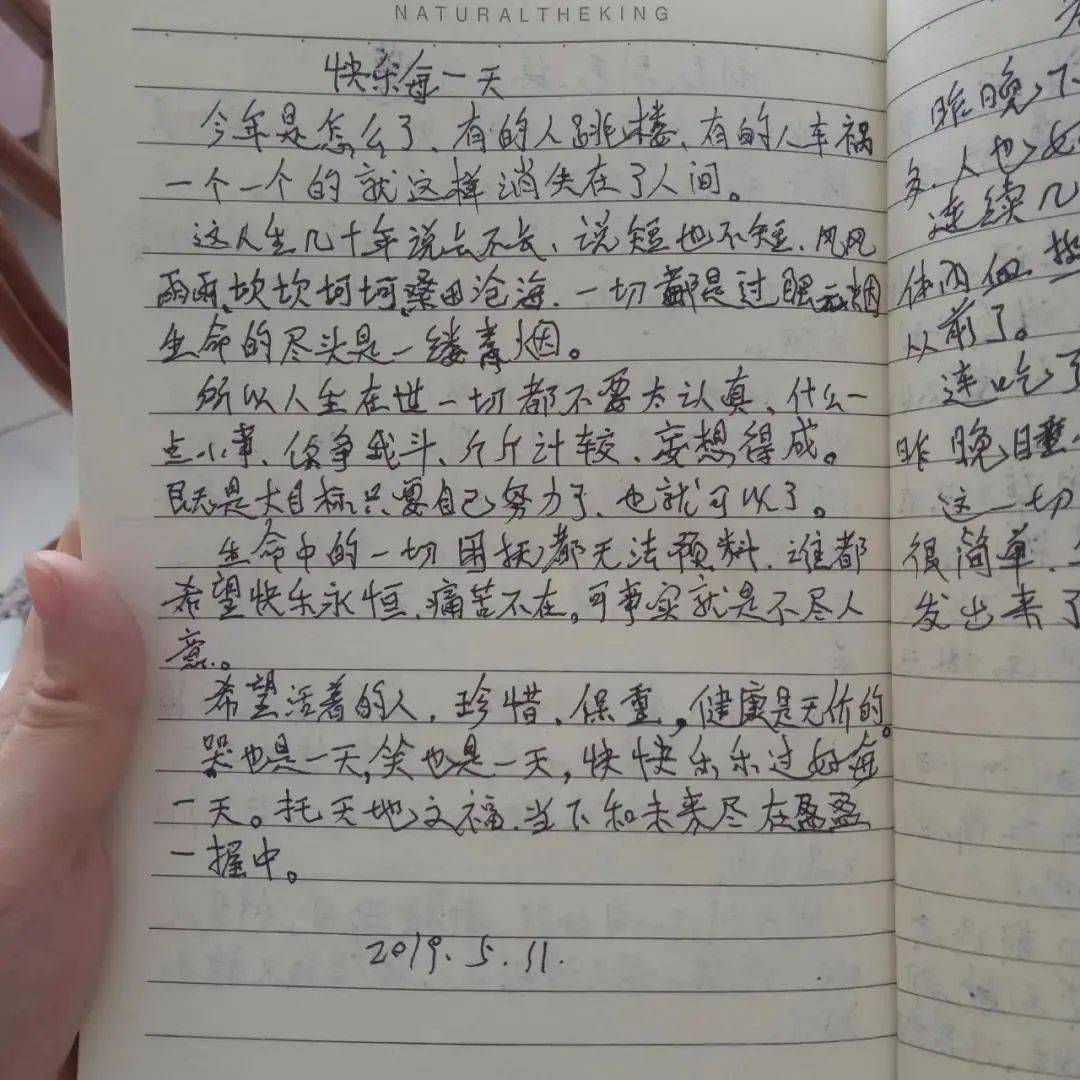 NATURALTHEKING
快乐每一天
今年是怎么了、有的人跳楼、有的人车祸
一个一个的就这样消失在了人间。
这人生几十年说长不长、说短也不短、风风
雨雨、坎坎坷坷、桑田沧海、一切都是过眼云烟
生命的尽头是一缕青烟。
所以人生在世一切都不要太认真、什么一
点小事、你争我斗、斤斤计较、妄想得成。
既是大目标只要自己努力了、也就可以了。
生命中的一切困扰都无法预料、谁都
希望快乐永恒、痛苦不在。可事实就是不尽人
意.。
希望活着的人、珍惜、保重,健康是无价的。
哭也是一天,笑也是一天,快快乐乐过好每
一天。托天地之福、当下和未来尽在盈盈
一握中。
2019.5.11.
昨晚下
多、人也
连续几
体内血
从前了。
连吃了
昨晚睡
这一切
很简单、
发出来了